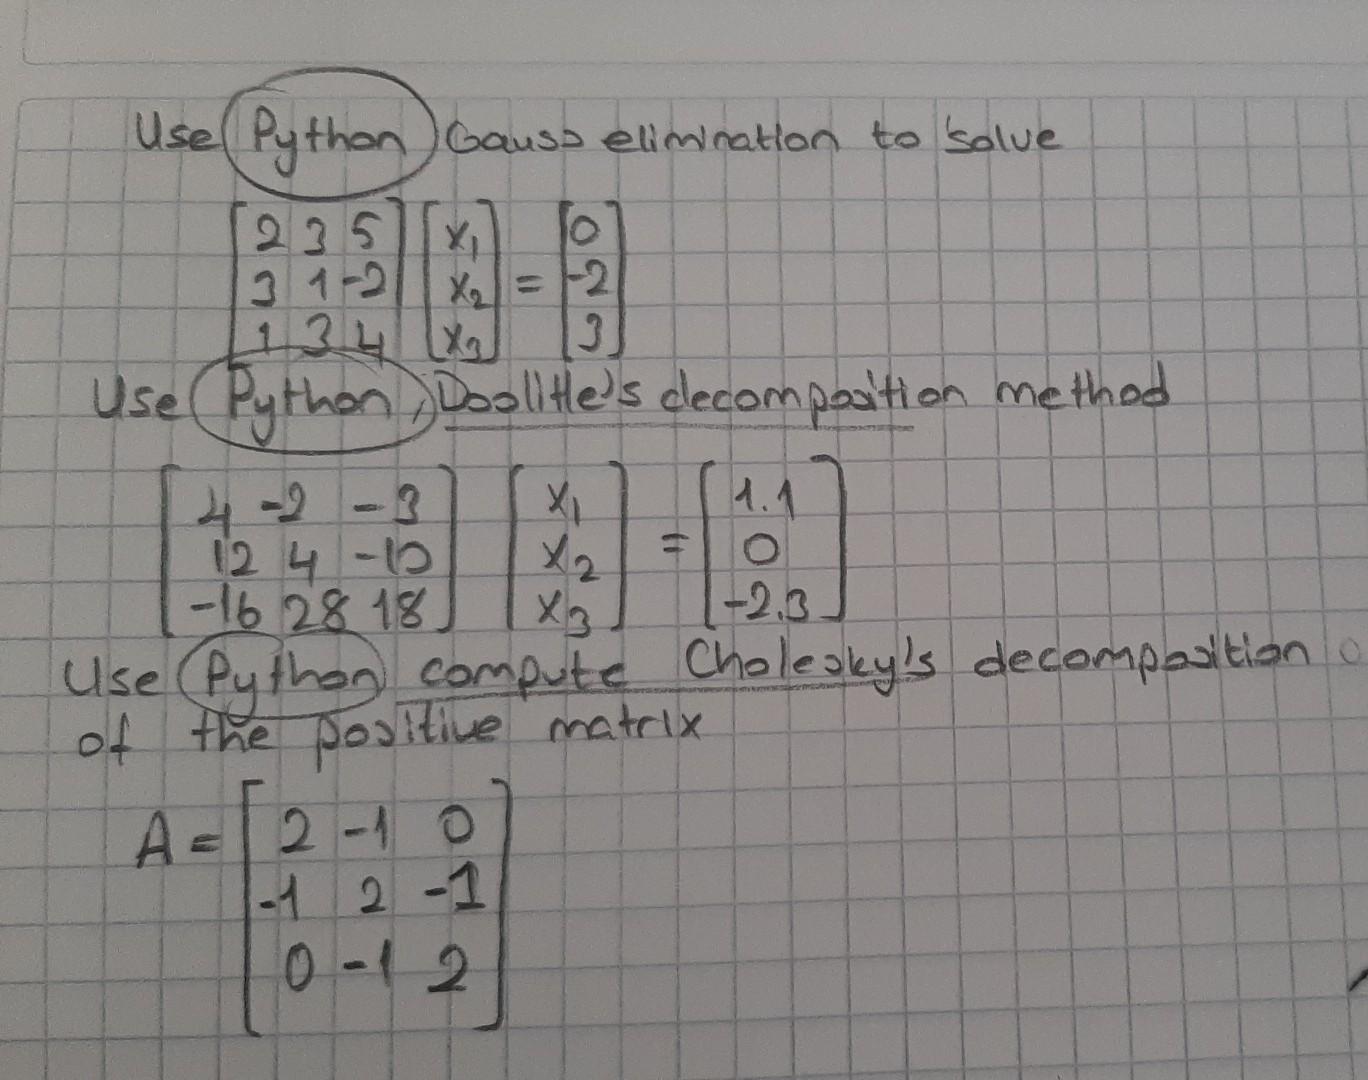 Use Python Gauss elimination to solve
[2 3 5] [x₁] = [0]
[3 1 -2] [x₂] = [-2]
[1 3 4] [x₃] = [3]
Use Python, Doolittle's decomposition method
[4 -2 -3] [x₁] = [1.1]
[12 4 -10] [x₂] = [0]
[-16 28 18] [x₃] = [-2.3]
Use Python compute Cholesky's decomposition
of the positive matrix
A = [2 -1 0]
[-1 2 -1]
[0 -1 2]